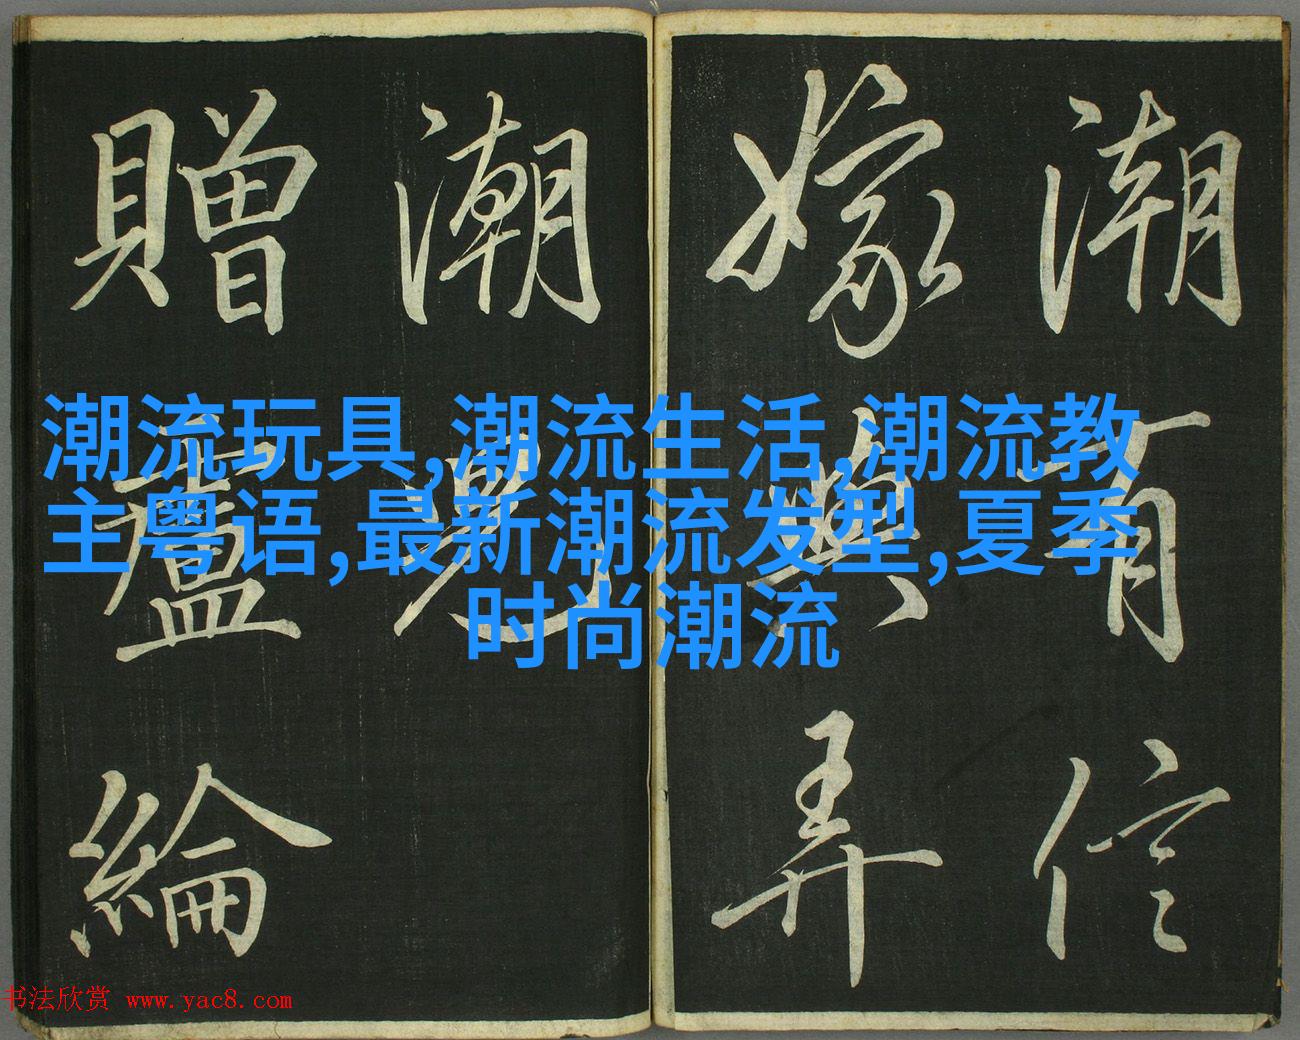 潮有信
嫁與弄
潮兒
贈盧綸
潮流玩具,潮流生活,潮流教
主粤语,最新潮流发型,夏季
时尚潮流
书法欣赏 www.yac8.com